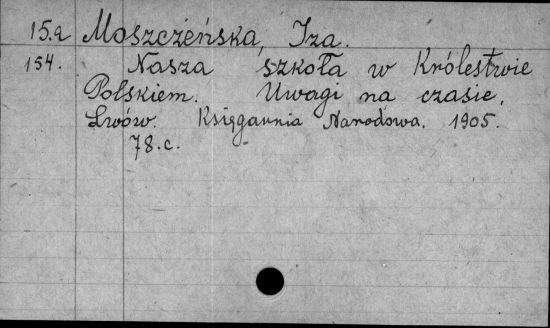 15.a Moszczeńska, Iza.
154. Nasza szkoła w Królestwie
Polskiem. Uwagi na czasie.
Lwów. Księgarnia Narodowa. 1905.
78.c.